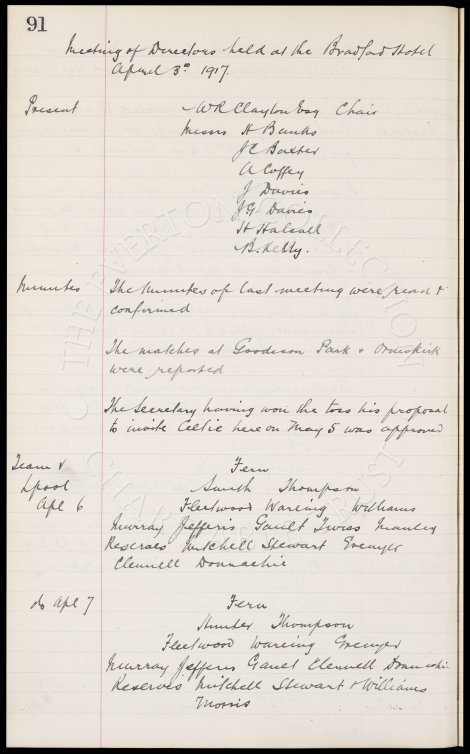 91
Meeting of Directors held at the Bradford Hotel
April 3rd 1917.
Present W R Clayton Esq Chair
Messrs H Banks
J C Baxter
A Coffey
J Davies
J G Davies
H Halsall
B. Kelly.
Minutes The Minutes of last meeting were read &
confirmed
The matches at Goodison Park & Ormskirk
were reported
The Secretary having won the toss his proposal
to invite Celtic here on May 5 was approved
Team v Fern
Lpool Smith Thompson
Apl 6 Fleetwood Wareing Williams
Murray Jefferis Gault Twiss Manley
Reserves Mitchell Stewart Grenyer
Clennell Donnachie
do Apl 7 Fern
Hunter Thompson
Fleetwood Wareing Grenyer
Murray Jefferis Gault Clennell Donnachie
Reserves Mitchell Stewart & Williams
Morris
THE EVERTON COLLECTION
CHARITABLE TRUST